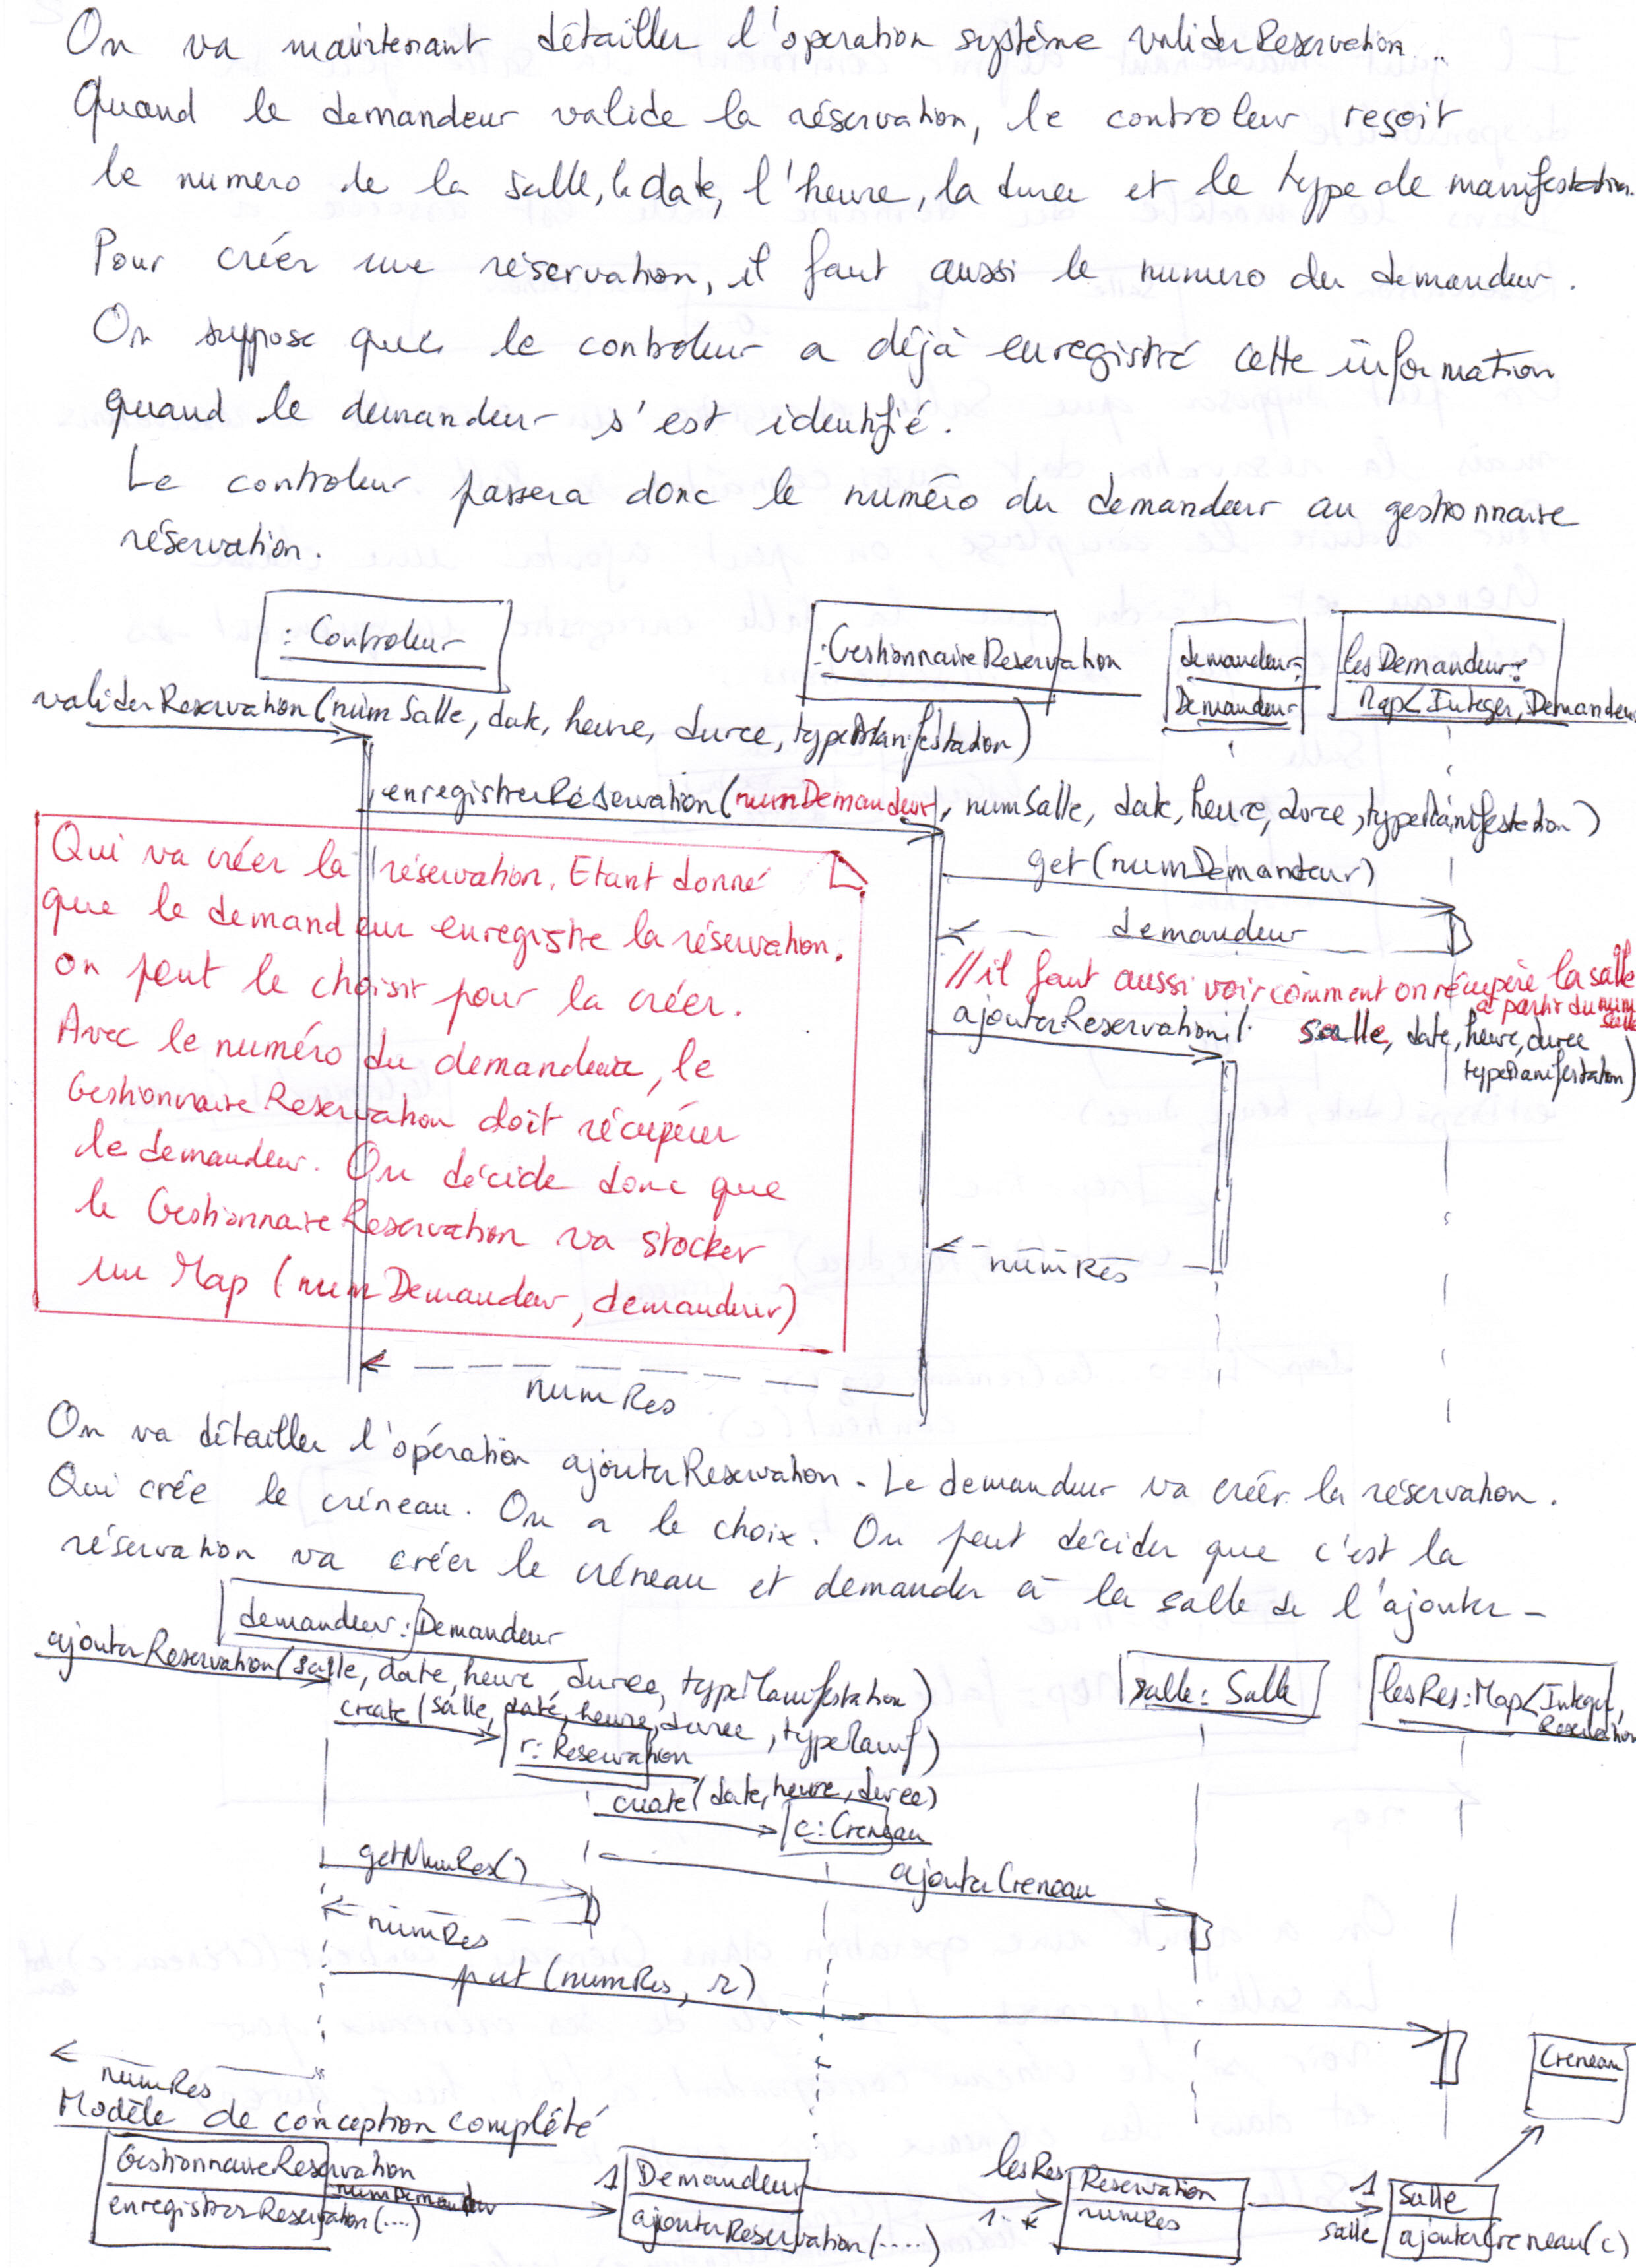 On va maintenant détailler l'operation système validerReservation.
Quand le demandeur valide la réservation, le controleur reçoit
le numero de la salle, la date, l'heure, la duree et le type de manifestation.
Pour créer une réservation, il faut aussi le numero du demandeur.
On suppose que le controleur a déjà enregistré cette information
quand le demandeur s'est identifié.
Le controleur passera donc le numéro du demandeur au gestionnaire
réservation.
: Controleur
:GestionnaireReservation
demandeur:
Demandeur
lesDemandeur:
Map<Integer, Demandeur
validerReservation(numSalle, date, heure, duree, typeManifestation)
enregistrerReservation(numDemandeur, numSalle, date, heure, duree, typeManifestation)
get(numDemandeur)
demandeur
//il faut aussi voir comment on récupère la salle
à partir du num
salle
ajouterReservation( salle, date, heure, duree
typeManifestation)
Qui va créer la réservation. Etant donné
que le demandeur enregistre la réservation,
on peut le choisir pour la créer.
Avec le numéro du demandeur, le
GestionnaireReservation doit récupérer
le demandeur. On décide donc que
le GestionnaireReservation va stocker
un Map (numDemandeur, demandeur)
numRes
numRes
On va détailler l'opération ajouterReservation. Le demandeur va créer la réservation.
Qui crée le créneau. On a le choix. On peut décider que c'est la
réservation va créer le créneau et demander à la salle de l'ajouter.
demandeur: Demandeur
ajouterReservation(salle, date, heure, duree, typeManifestation)
salle: Salle
lesRes: Map<Integer,
Reservation
create(salle, date, heure, duree, typeManif)
r: Reservation
create(date, heure, duree)
c: Creneau
getNumRes()
ajouterCreneau
numRes
put(numRes, r)
numRes
Modèle de conception complété
Creneau
GestionnaireReservation
numDemandeur
enregistrerReservation(....)
1
Demandeur
ajouterReservation(.....)
lesRes
1..*
Reservation
numRes
1
salle
Salle
ajouterCreneau(c)